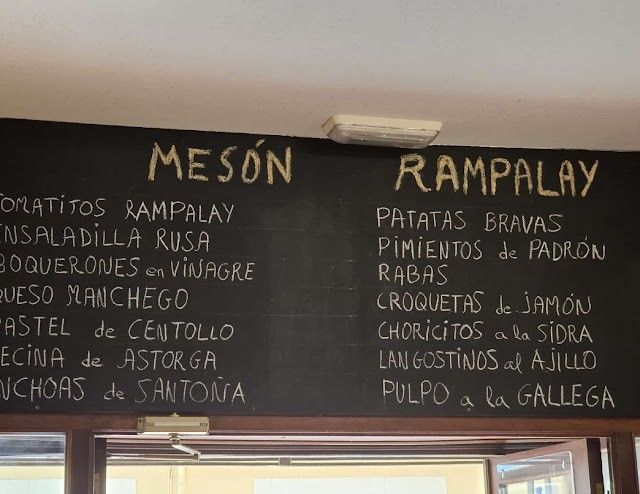 MESÓN RAMPALAY
OMATITOS RAMPALAY
ENSALADILLA RUSA
BOQUERONES en VINAGRE
QUESO MANCHEGO
PASTEL de CENTOLLO
ECINA de ASTORGA
NCHOAS de SANTOÑA
PATATAS BRAVAS
PIMIENTOS de PADRÓN
RABAS
CROQUETAS de JAMÓN
CHORICITOS a la SIDRA
LANGOSTINOS al AJILLO
PULPO a la GALLEGA